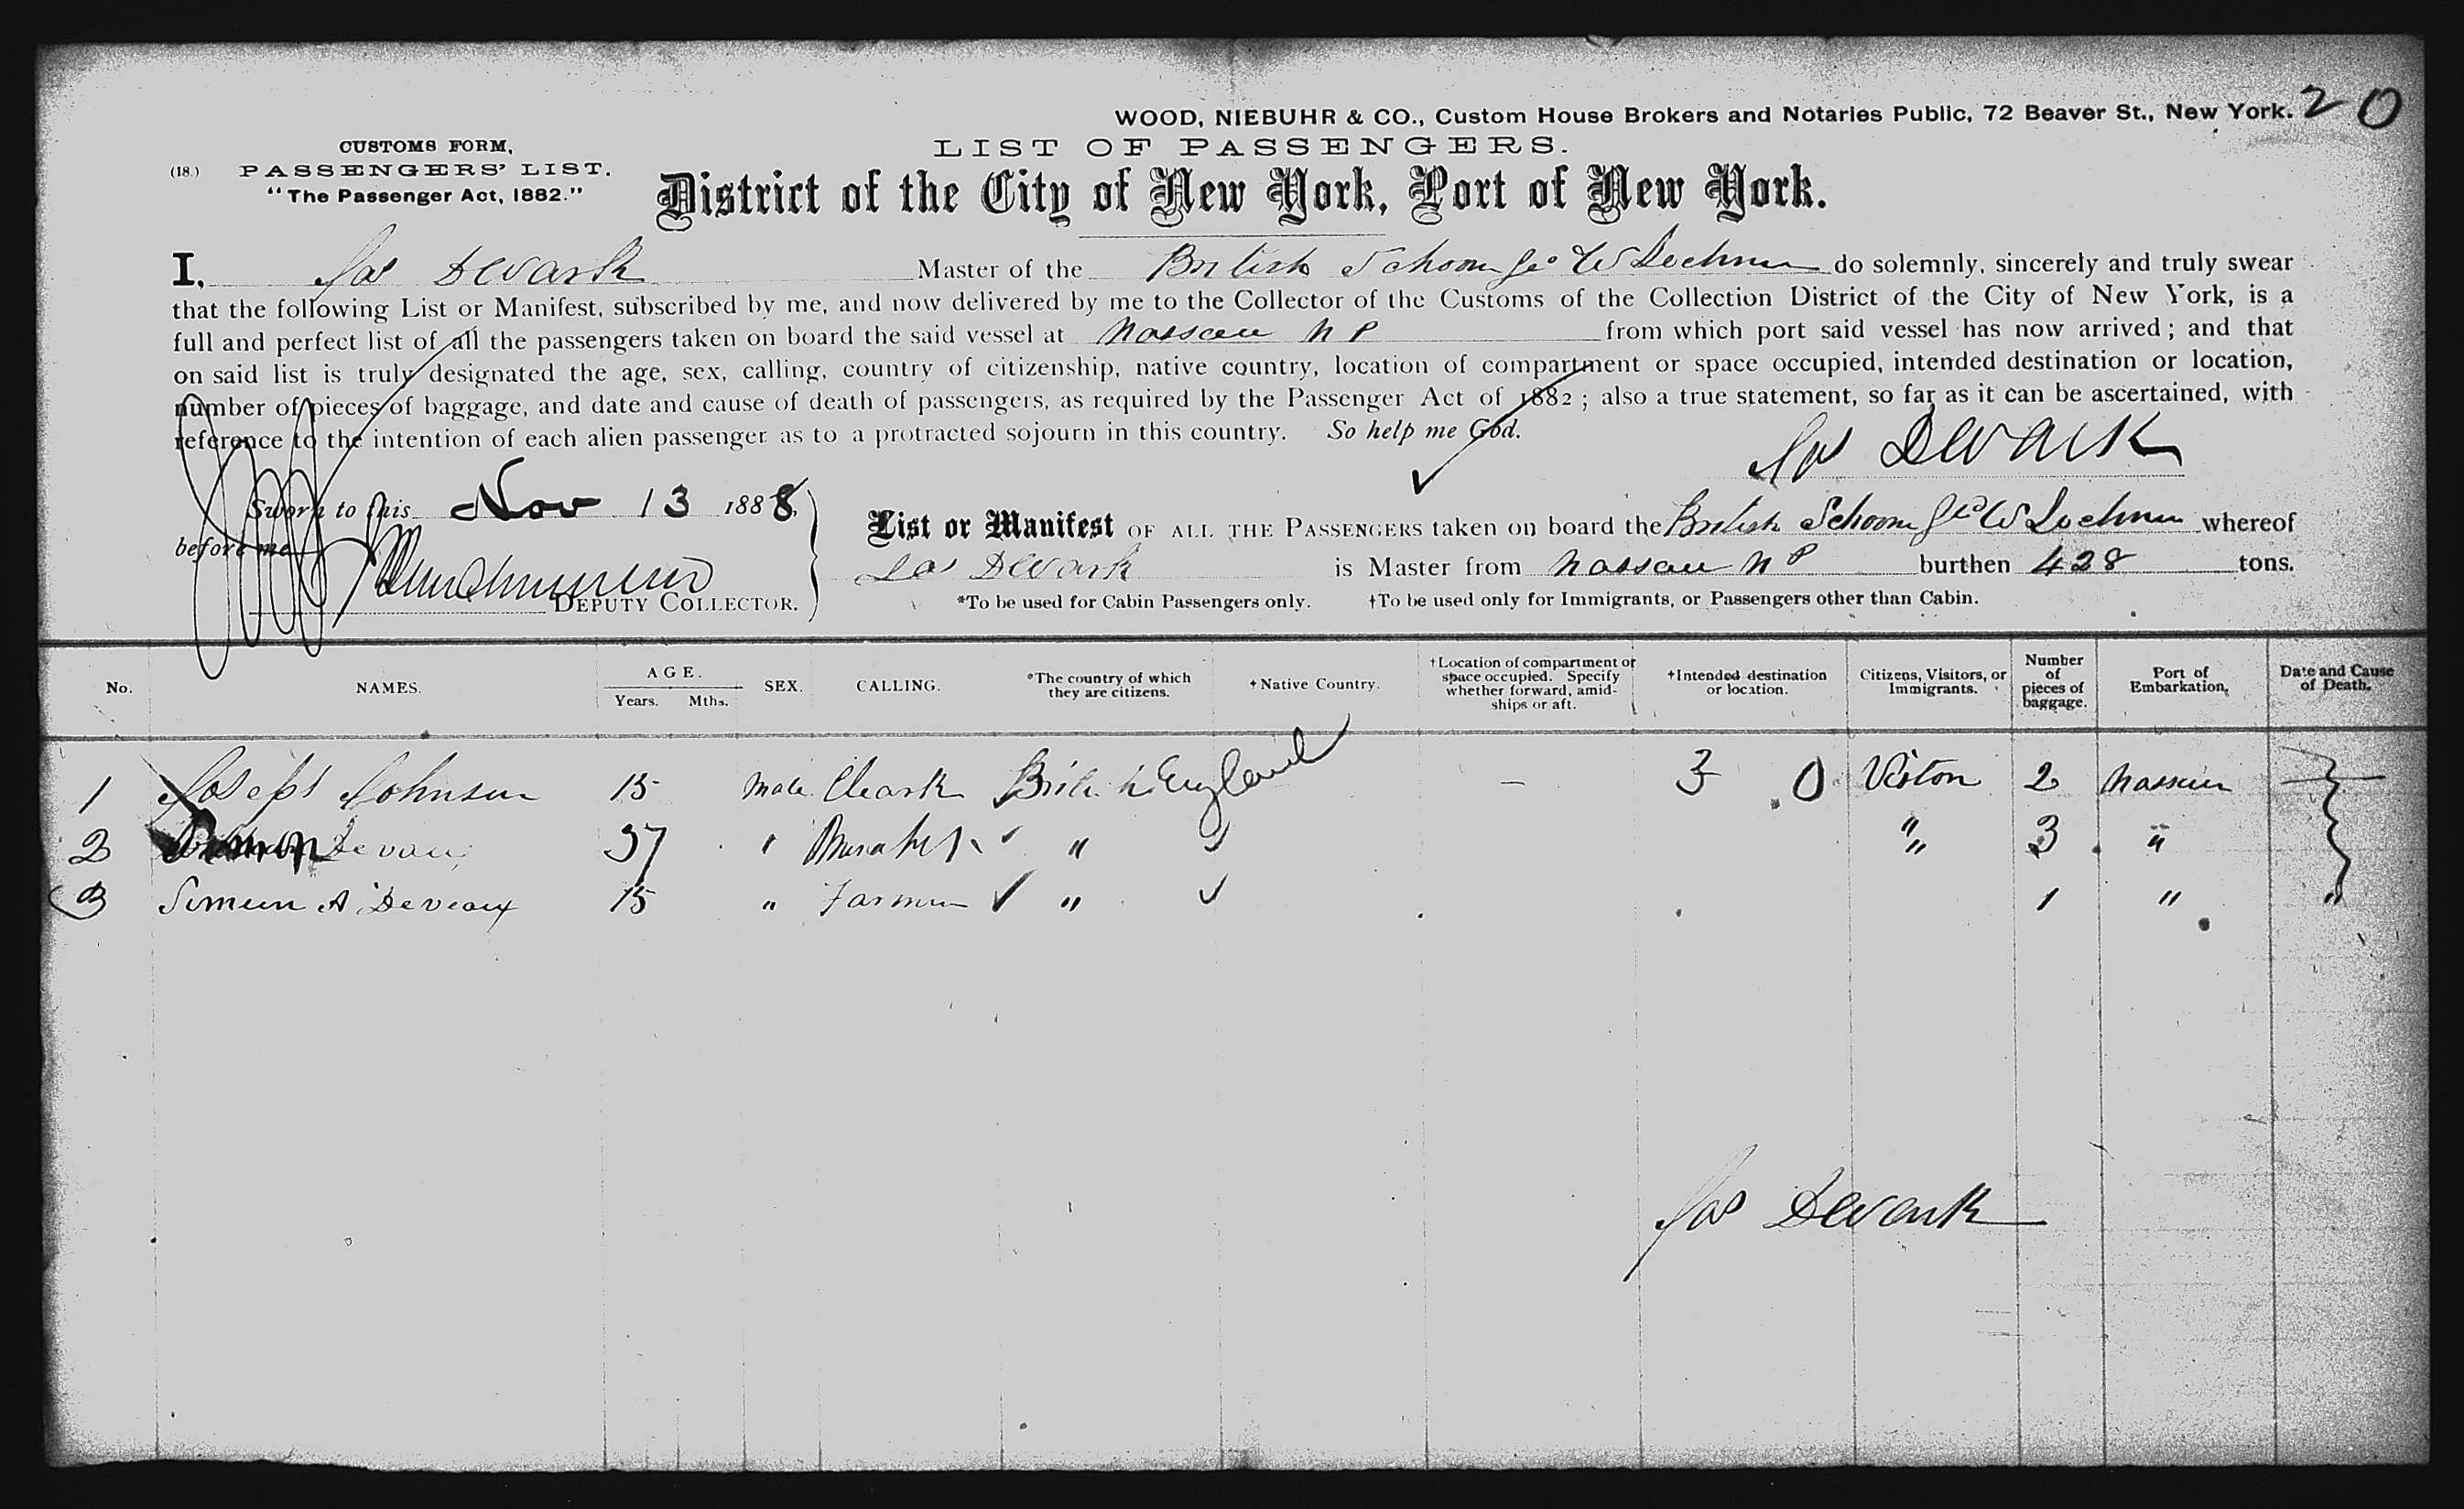 WOOD, NIEBUHR & CO., Custom House Brokers and Notaries Public, 72 Beaver St., New York. 20
CUSTOMS FORM,
(18.) PASSENGERS' LIST.
"The Passenger Act, 1882."
LIST OF PASSENGERS.
District of the City of New York, Port of New York.
I, Jas Dwark Master of the British Schoon Geo W Lochner do solemnly, sincerely and truly swear
that the following List or Manifest, subscribed by me, and now delivered by me to the Collector of the Customs of the Collection District of the City of New York, is a
full and perfect list of all the passengers taken on board the said vessel at Nassau N P from which port said vessel has now arrived; and that
on said list is truly designated the age, sex, calling, country of citizenship, native country, location of compartment or space occupied, intended destination or location,
number of pieces of baggage, and date and cause of death of passengers, as required by the Passenger Act of 1882; also a true statement, so far as it can be ascertained, with
reference to the intention of each alien passenger as to a protracted sojourn in this country. So help me God.
Jas Dwark
Sworn to this Nov 13 1888
before me
DEPUTY COLLECTOR.
List or Manifest OF ALL THE PASSENGERS taken on board the British Schoon Geo W Lochner whereof
Jas Dwark is Master from Nassau N P burthen 428 tons.
*To be used for Cabin Passengers only. †To be used only for Immigrants, or Passengers other than Cabin.
No. NAMES. AGE. Years. Mths. SEX. CALLING. *The country of which they are citizens. †Native Country. †Location of compartment or space occupied. Specify whether forward, amidships or aft. †Intended destination or location. Citizens, Visitors, or Immigrants. Number of pieces of baggage. Port of Embarkation. Date and Cause of Death.
1 Joseph Johnson 15 Male Cleark British England — 3 0 Visitor 2 Nassau
2 37 " " " 3 "
3 Simeon A Deveaux 15 " Farmer " 1 " "
Jas Dwark